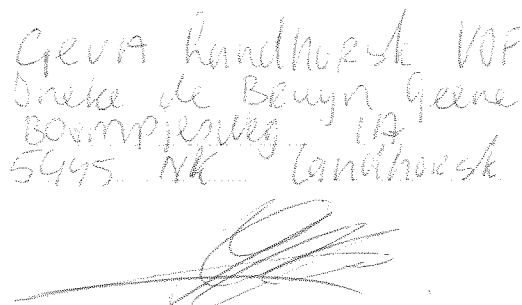 GEVA Landhorst VOF
Ineke de Bruyn Geene
Boompjesweg 1A
5445 NK Landhorst